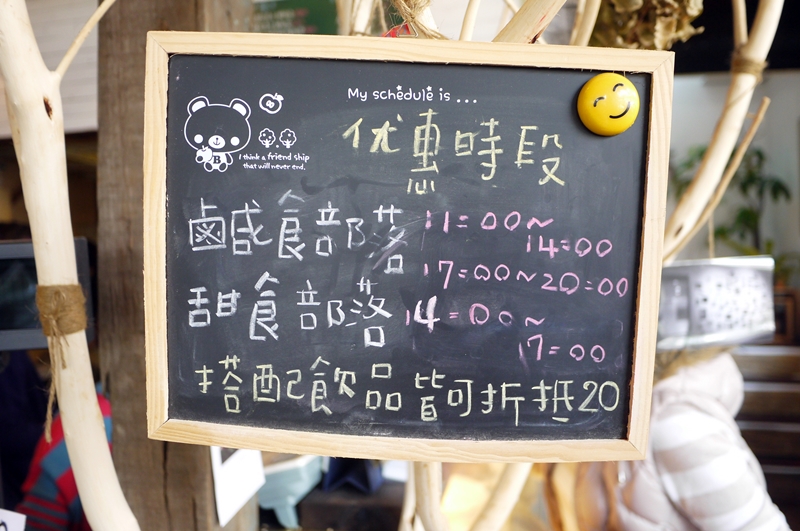 My schedule is ...
I think a friend ship
that will never end.
B
优惠時段
鹹食部落 11:00~
14:00
17:00~20:00
甜食部落 14:00~
17:00
搭配飲品皆可折抵20